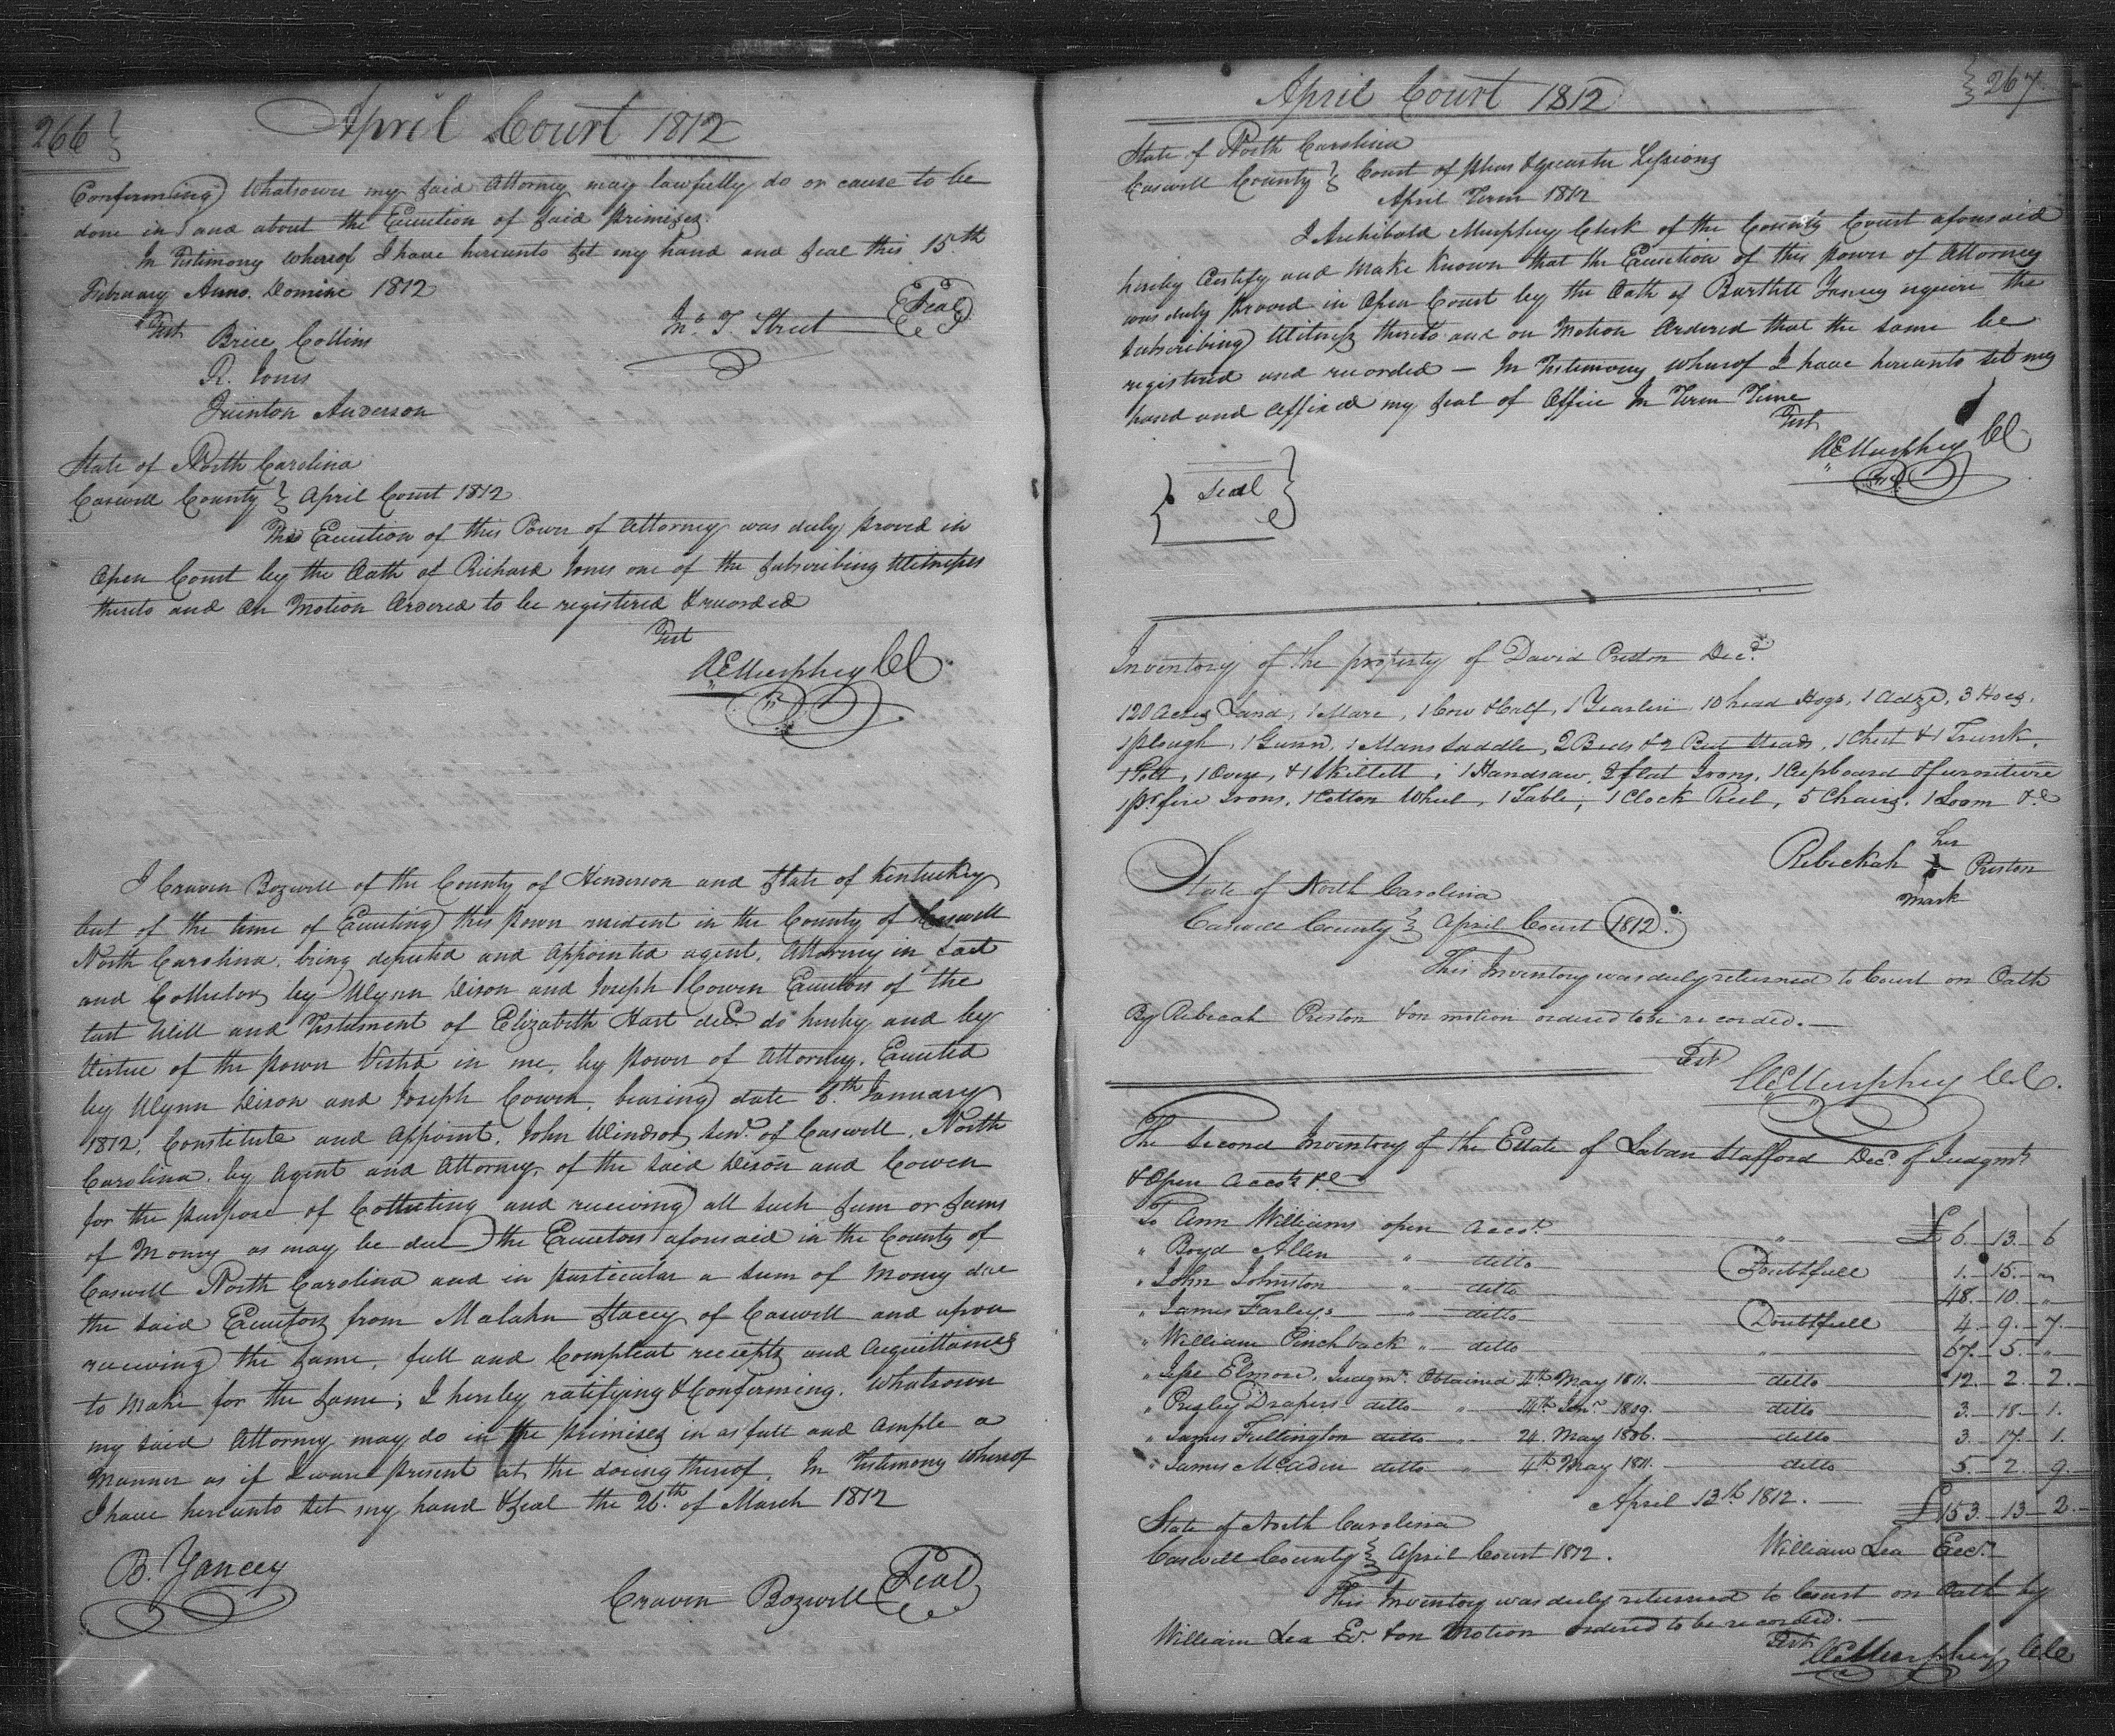 266
April Court 1812
Confirming Whatsover my said Attorney may lawfully do or cause to be
done in and about the Execution of said primises
In Testimony whereof I have hereunto set my hand and seal this 15th
February Anno. Domine 1812
Test
Jno. T. Street Seal
Brice Collins
R. Jones
Quinton Anderson
State of North Carolina
Caswell County } April Court 1812
The Execution of this Power of Attorney was duly proved in
Open Court by the Oath of Richard Jones one of the subscribing Witnesses
thereto and on Motion Ordered to be registered & recorded
Test
AE Murphey CC
I Craven Bozwell of the County of Henderson and State of Kentuckey
but of the time of Executing this power resident in the County of Caswell
North Carolina, being deputed and Appointed agent, Attorney in fact
and Collector by Wynn Dixon and Joseph Cowen Executors of the
last Will and Testament of Elizabeth Hart decd. do hereby and by
Vertue of the power Vested in me, by power of Attorney, Executed
by Wynn Dixon and Joseph Cowen, bearing date 8th January
1812, Constitute and Appoint, John Windsor senr. of Caswell, North
Carolina, by Agent and Attorney, of the said Dixon and Cowen
for the purpose of Collecting and receiving all such sum or sums
of Money as may be due the Executors aforesaid in the County of
Caswell North Carolina and in particular a sum of Money due
the said Executors from Malahn Stacey of Caswell and upon
receiving the same, full and Compleat receipts and Acquittances
to Make for the same; I hereby ratifying & Confirming, Whatsover
my said Attorney may do in the primises in as full and Ample a
Manner as if I ware present at the doeing thereof, In Testimony Whereof
I have hereunto set my hand & seal the 26th of March 1812
B. Yancey
Craven Bozwell Seal
267
April Court 1812
State of North Carolina
Caswell County } Court of pleas & quarter Sessions
April Term 1812
I Archibald Murphey Clerk of the County Court aforesaid
hereby Certify and Make Known that the Execution of this power of Attorney
was duly proved in Open Court by the Oath of Bartlett Yancey esquire the
subscribing Witness thereto and on Motion Ordered that the same be
registered and recorded — In Testimony Whereof I have hereunto set my
hand and Affixed my seal of Office In Term Time
Test
AE Murphey CC
Seal
Inventory of the property of David Preston Decd.
120 Acres Land, 1 Mare, 1 Cow & Calf, 1 Yearlin, 10 head Hogs, 1 Adze, 3 Hoes,
1 plough, 1 Gunn, 1 Mans Saddle, 2 Beds & 2 Bed Steads, 1 Chest & 1 Trunk,
1 Pott, 1 Oven, & 1 Skillett, 1 Handsaw, 2 flat Irons, 1 Cupboard & furniture
1 pr. fire Irons, 1 Cotton Wheel, 1 Table, 1 Clock Reel, 5 Chairs, 1 Loom &c
her
Rebeckah Preston
mark
State of North Carolina
Caswell County } April Court 1812.
This Inventory was duly returned to Court on Oath
By Rebecah Preston & on motion ordered to be recorded. —
Test
AE Murphey C.C.
The Second Inventory of the Estate of Laban Stafford Decd. of Judgmts
& Open Accots. &c
To Ann Williams open Accot. " £ 6. 13. 6
" Boyd Allen " ditto Doubtfull 1. 15. "
" John Johnston " ditto 48. 10. "
" James Farleys " ditto Doubtfull 4. 9. 7.
" William Pinchback " ditto " 67. 5. "
" Jesse Elmore, Judgmt. Obtained 4th May 1811. ditto 12. 2. 2.
" Presley Drapers ditto " 4th Jany. 1809. ditto 3. 18. 1.
" James Fullington ditto " 24. May 1806. ditto 3. 17. 1.
" James McAden ditto " 4th May 1811. ditto 5. 2. 9.
April 13th 1812. — £153. 13. 2.
State of North Carolina
William Lea Execr.
Caswell County } April Court 1812.
This Inventory was duly returned to Court on Oath by
William Lea Ex. & on Motion ordered to be recorded. —
Test
AE Murphey CC